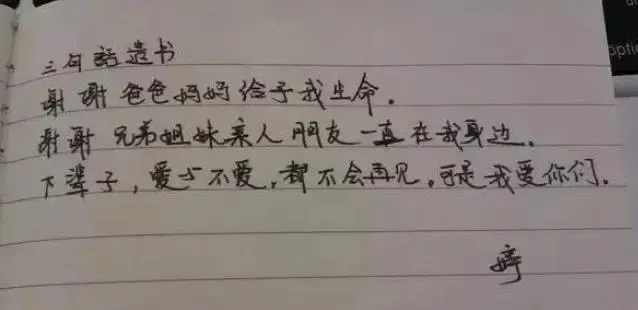 三句話遗书
谢谢爸爸妈妈给予我生命。
谢谢兄弟姐妹亲人朋友一直在我身边。
下辈子，爱与不爱，都不会再见。可是我爱你们。
婷